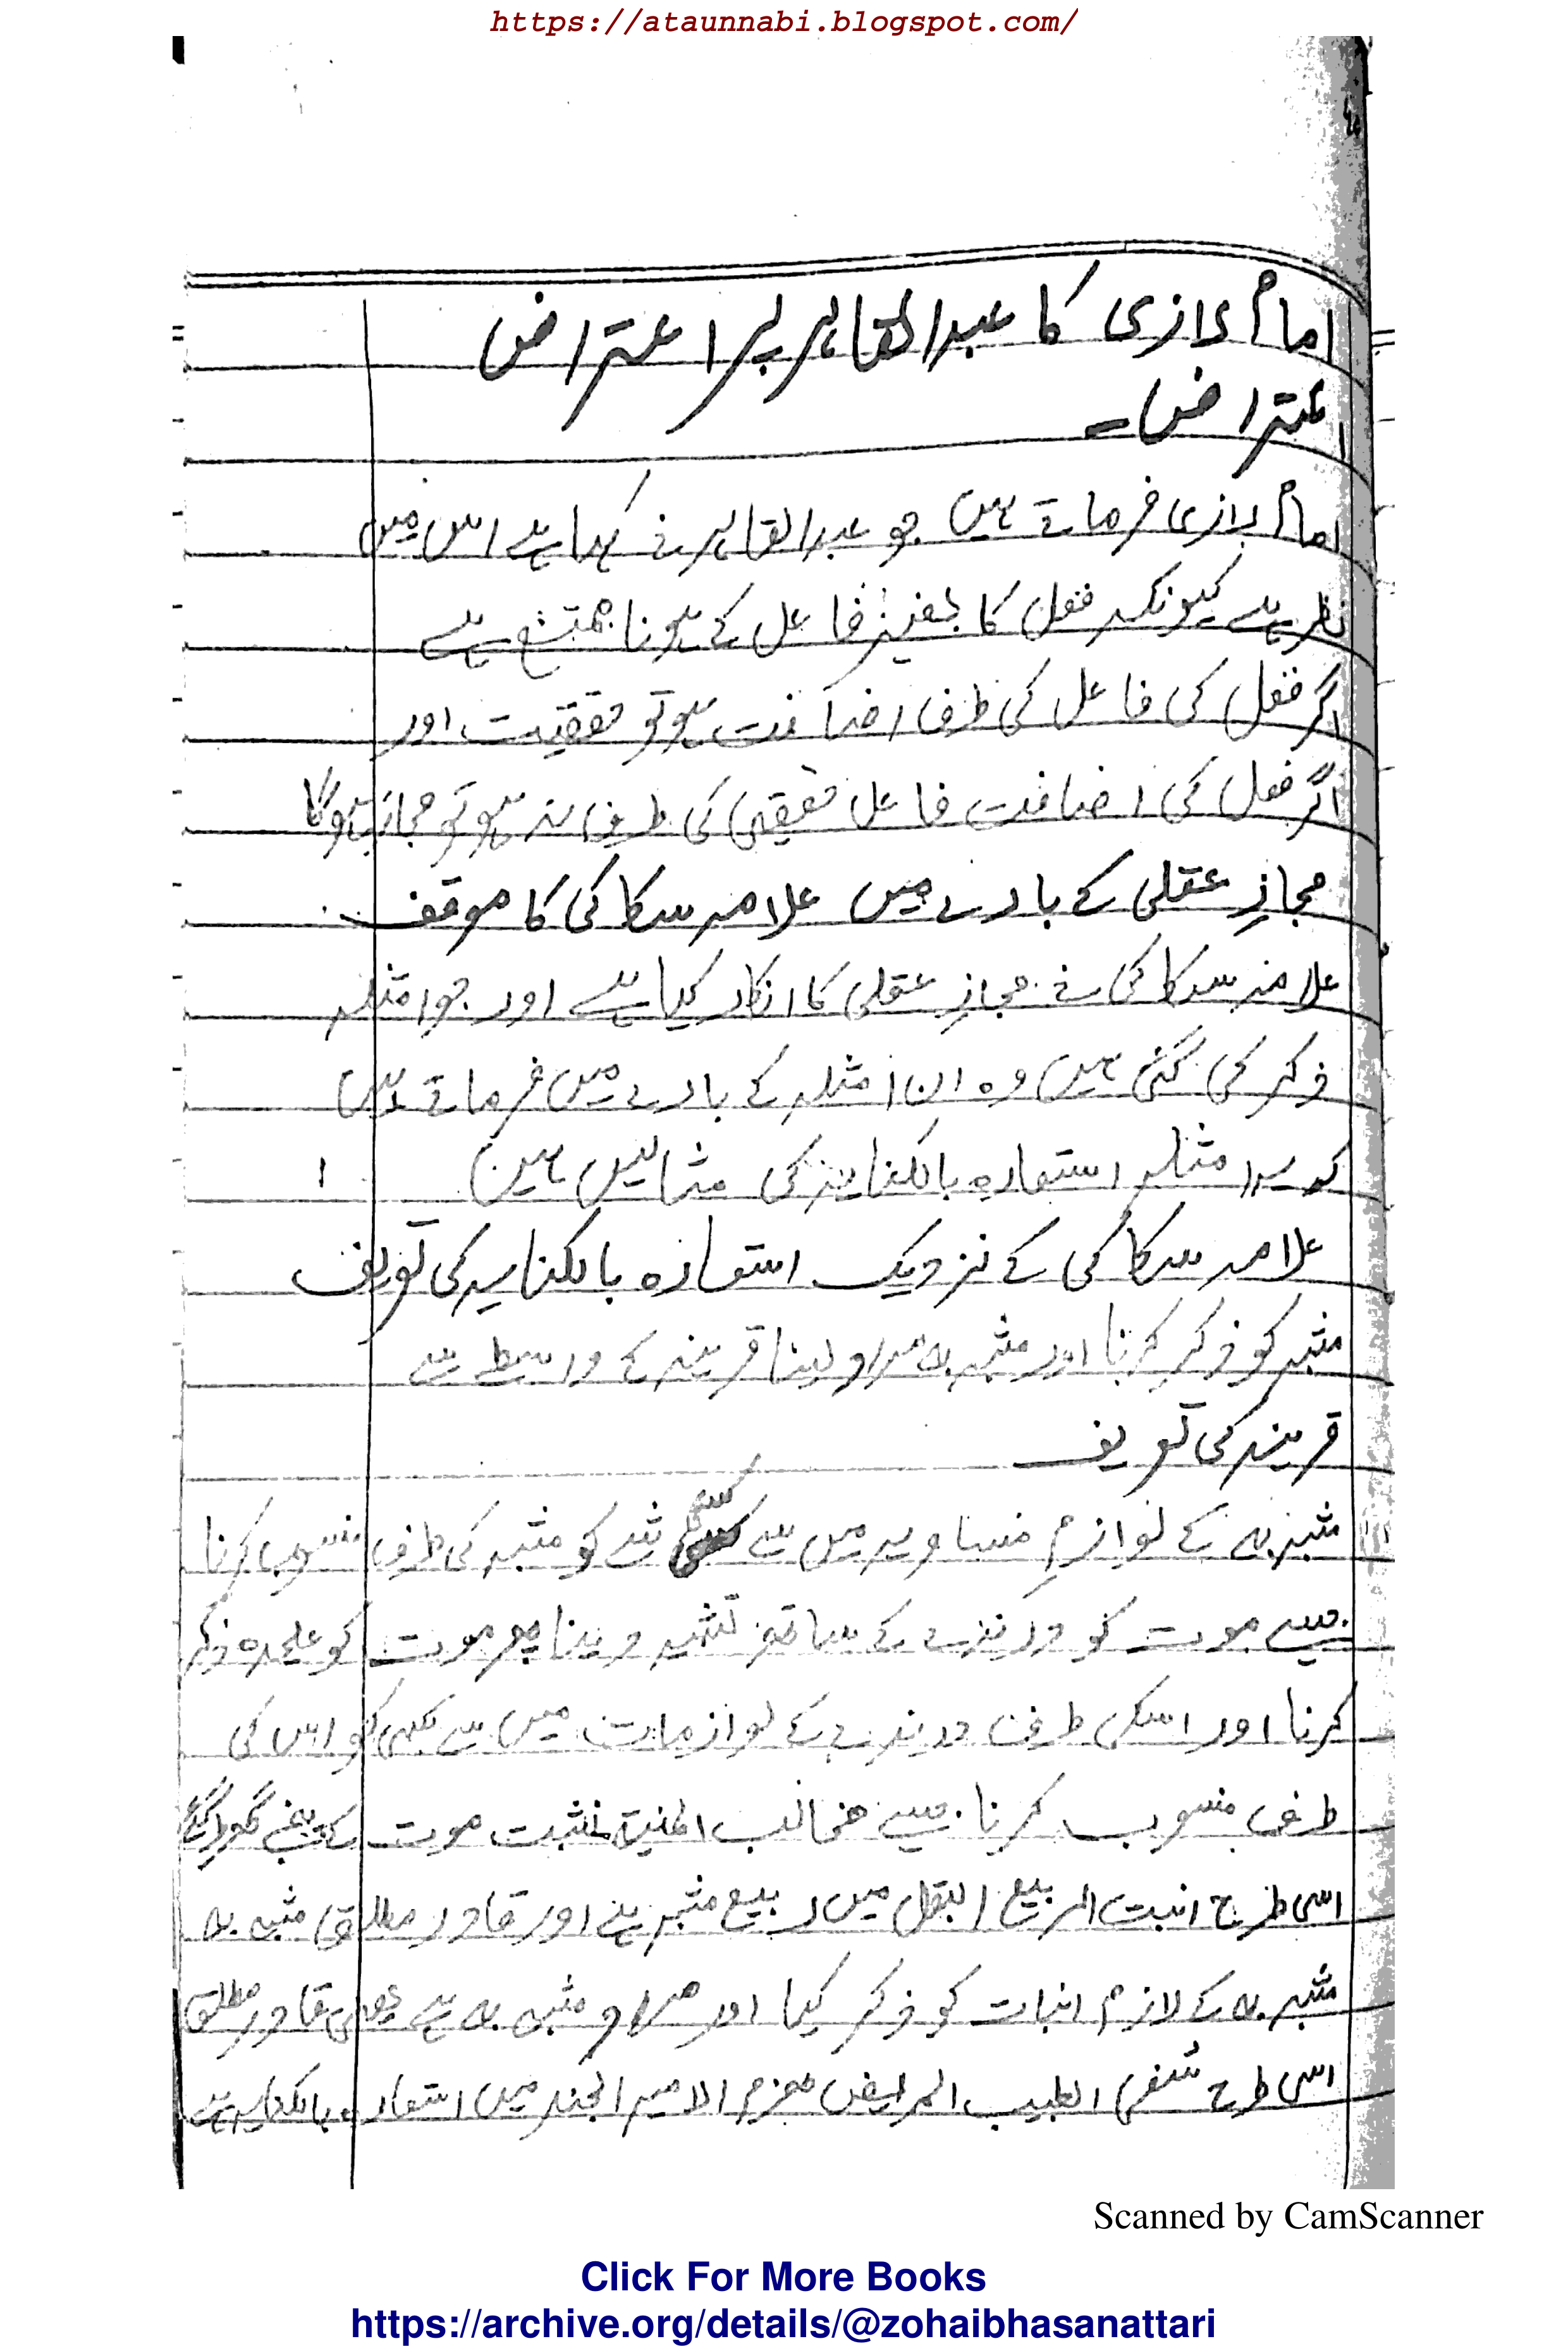 https://ataunnabi.blogspot.com/
امام رازی کا عبدالقاہر پر اعتراض
اعتراض۔
امام رازی فرماتے ہیں جو عبدالقاہر نے کہا ہے اس میں
نظر ہے کیونکہ فعل کا بغیر فاعل کے ہونا ممتنع ہے
اگر فعل کی فاعل کی طرف اضافت ہو تو حقیقت اور
اگر فعل کی اضافت فاعل حقیقی کی طرف نہ ہو تو مجاز ہوگا
مجازِ عقلی کے بارے میں علامہ سکاکی کا موقف
علامہ سکاکی نے مجازِ عقلی کا انکار کیا ہے اور جو امثلہ
ذکر کی گئی ہیں وہ ان امثلہ کے بارے میں فرماتے ہیں
کہ یہ امثلہ استعارہ بالکنایہ کی مثالیں ہیں
علامہ سکاکی کے نزدیک استعارہ بالکنایہ کی تعریف
مشبہ کو ذکر کرنا اور مشبہ بہ مراد لینا قرینہ کے واسطے سے
قرینہ کی تعریف
مشبہ بہ کے لوازمِ مساویہ میں سے کسی شے کو مشبہ کی طرف منسوب کرنا
جیسے موت کو درندے کے ساتھ تشبیہ دینا پھر موت کو علیحدہ ذکر
کرنا اور اسکی طرف درندے کے لوازمات میں سے کسی کو اس کی
طرف منسوب کرنا جیسے مخالب المنیۃ نشبت موت کے پنجے گھڑ گئے
اسی طرح انبت الربیع البقل میں ربیع مشبہ ہے اور قادر مطلق مشبہ بہ
مشبہ بہ کے لازم انبات کو ذکر کیا اور مراد مشبہ بہ ہے یعنی قادر مطلق
اسی طرح شفی الطبیب المریض ھزم الامیر الجند میں استعارہ بالکنایہ ہے
Scanned by CamScanner
Click For More Books
https://archive.org/details/@zohaibhasanattari